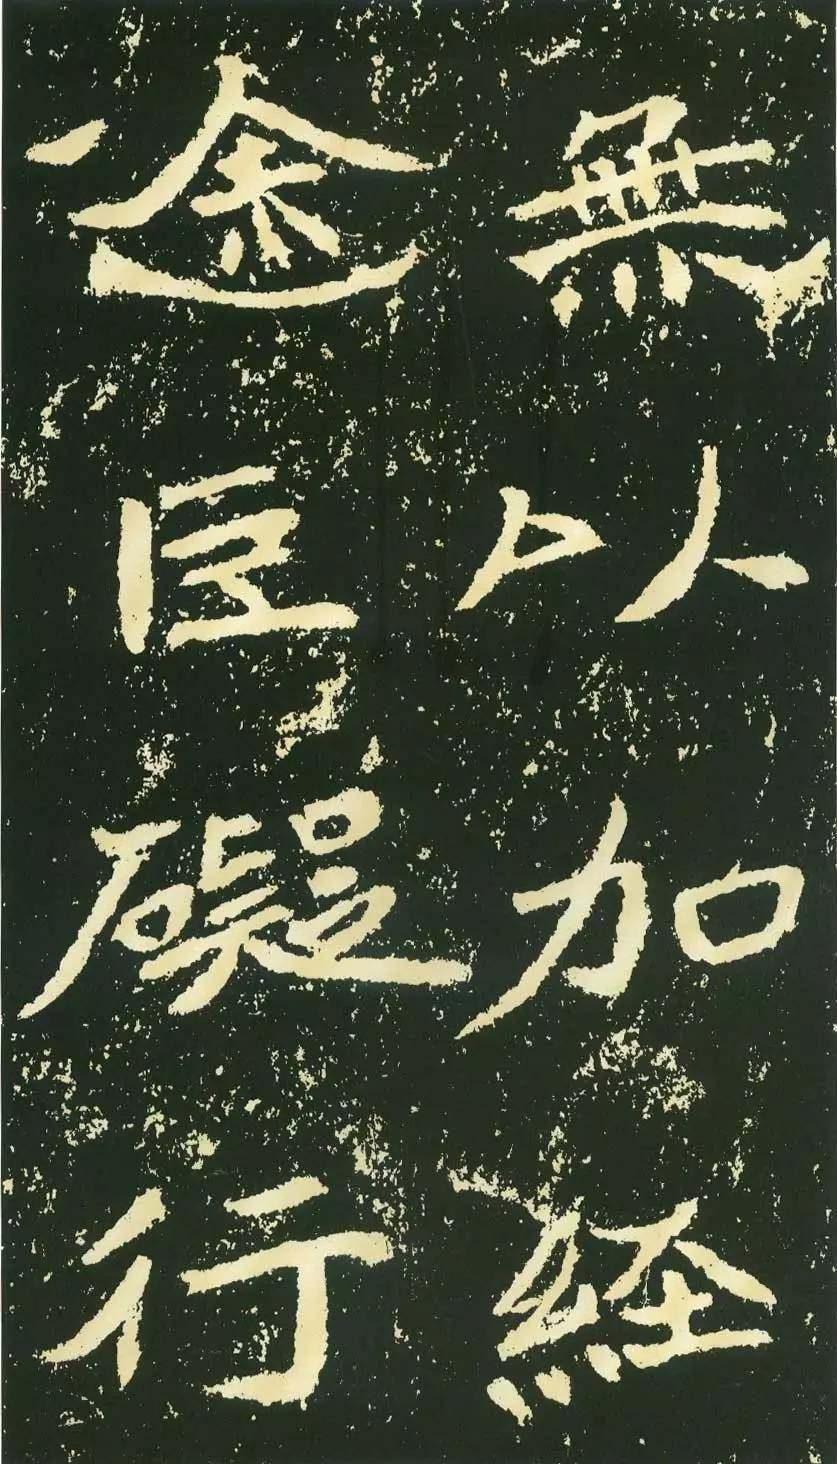 無以加経
途巨礙行